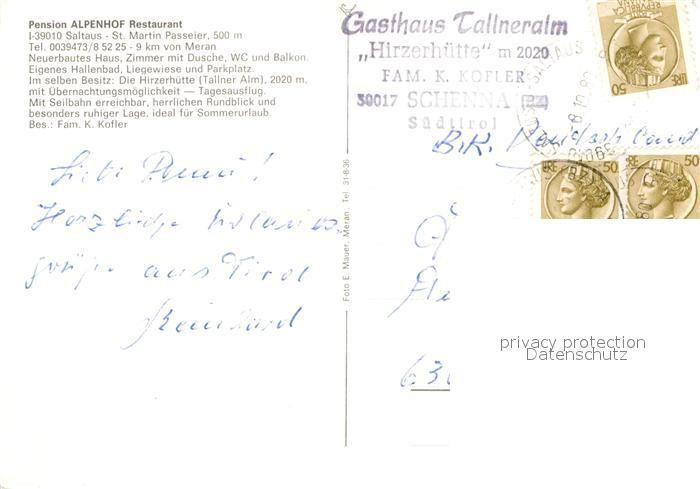 Pension ALPENHOF Restaurant
I-39010 Saltaus - St. Martin Passeier, 500 m
Tel. 0039473/8 52 25 - 9 km von Meran
Neuerbautes Haus, Zimmer mit Dusche, WC und Balkon.
Eigenes Hallenbad, Liegewiese und Parkplatz.
Im selben Besitz: Die Hirzerhütte (Tallner Alm), 2020 m,
mit Übernachtungsmöglichkeit — Tagesausflug.
Mit Seilbahn erreichbar, herrlichen Rundblick und
besonders ruhiger Lage, ideal für Sommerurlaub.
Bes.: Fam. K. Kofler
Liebe
Herzliche Urlaubs
grüße aus Tirol
Reinhard
Foto E. Mauer, Meran, Tel. 31-8-36
Gasthaus Tallneralm
„Hirzerhütte" m 2020
FAM. K. KOFLER
39017 SCHENNA (BZ)
Südtirol
LIRE 50
B.R. Deutschland
LIRE 50
50
630
privacy protection
Datenschutz